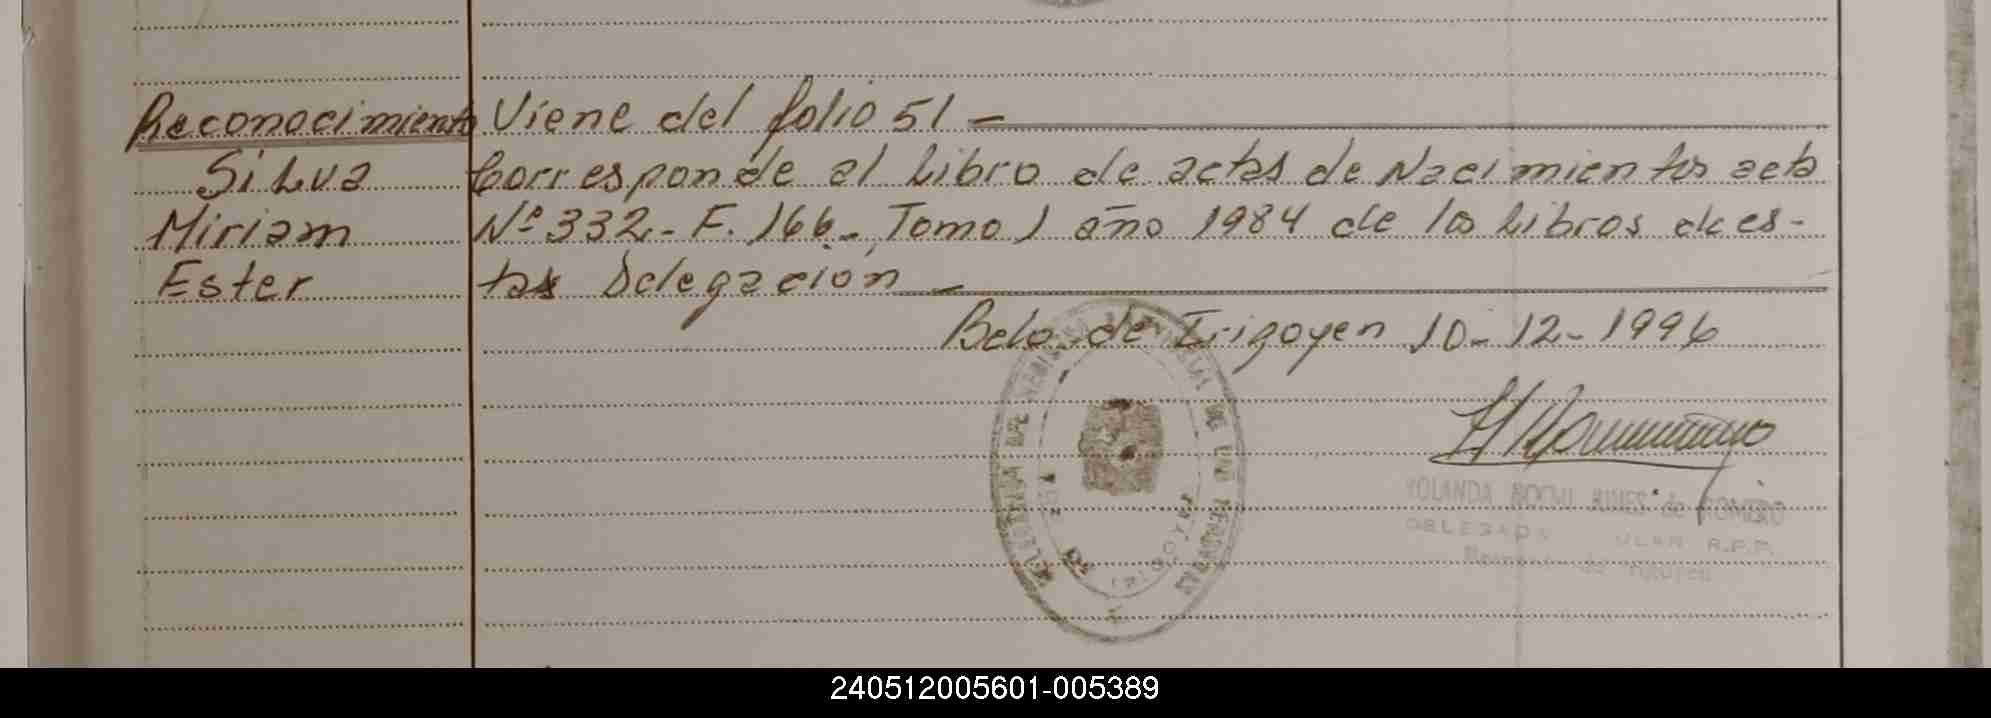 Reconocimiento Viene del folio 51 -
Silva Corresponde al Libro de actas de Nacimientos acta
Miriam Nº 332 - F. 166 - Tomo 1 año 1984 de los Libros de es-
Ester tas Delegación -
Bdo. de Irigoyen 10-12-1996
YOLANDA de ROMERO
R.P.P.
de Irigoyen
240512005601-005389